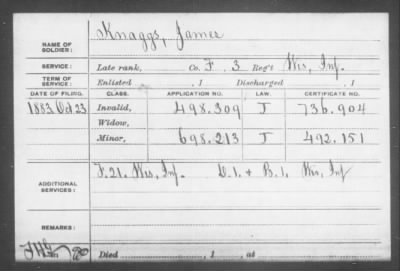 NAME OF SOLDIER: Knaggs, James
SERVICE: Late rank, Co. F, 3 Reg't Wis, Inf.
TERM OF SERVICE: Enlisted , 1 Discharged , 1
DATE OF FILING. CLASS. APPLICATION NO. LAW. CERTIFICATE NO.
1883, Oct 23 Invalid, 498.309 J 736.904
Widow,
Minor, 698.213 J 492.151
ADDITIONAL SERVICES: F. 21. Wis, Inf. D. 1. + B. 1. Wis, Inf
REMARKS:
Died , 1 , at